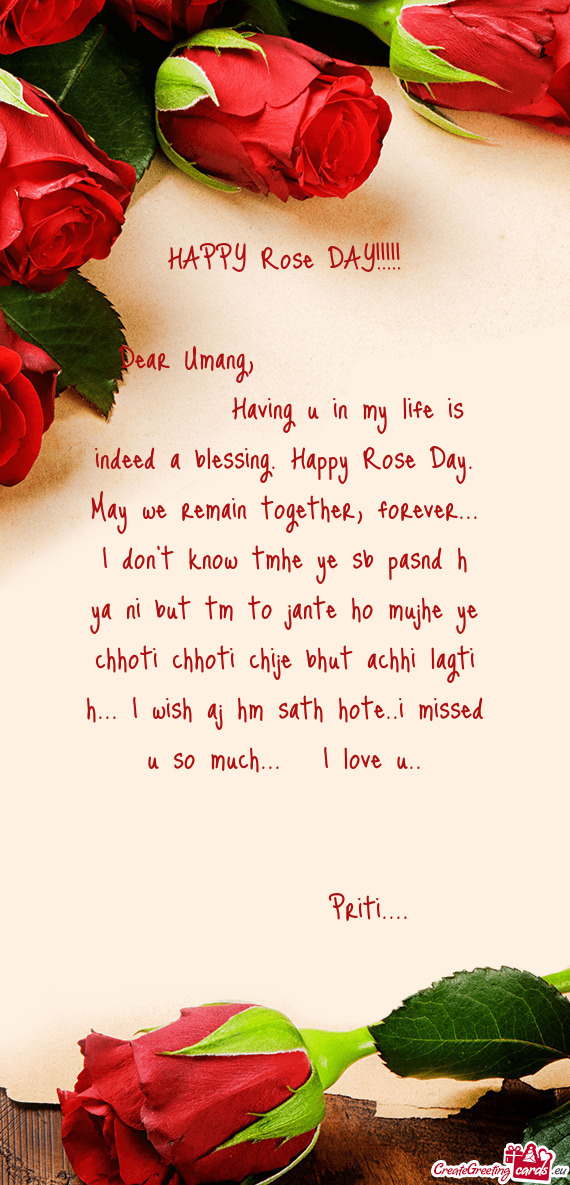 HAPPY Rose DAY!!!!!
Dear Umang,
Having u in my life is
indeed a blessing. Happy Rose Day.
May we remain together, forever...
I don't know tmhe ye sb pasnd h
ya ni but tm to jante ho mujhe ye
chhoti chhoti chije bhut achhi lagti
h... I wish aj hm sath hote..i missed
u so much... I love u..
Priti....
CreateGreetingcards.eu